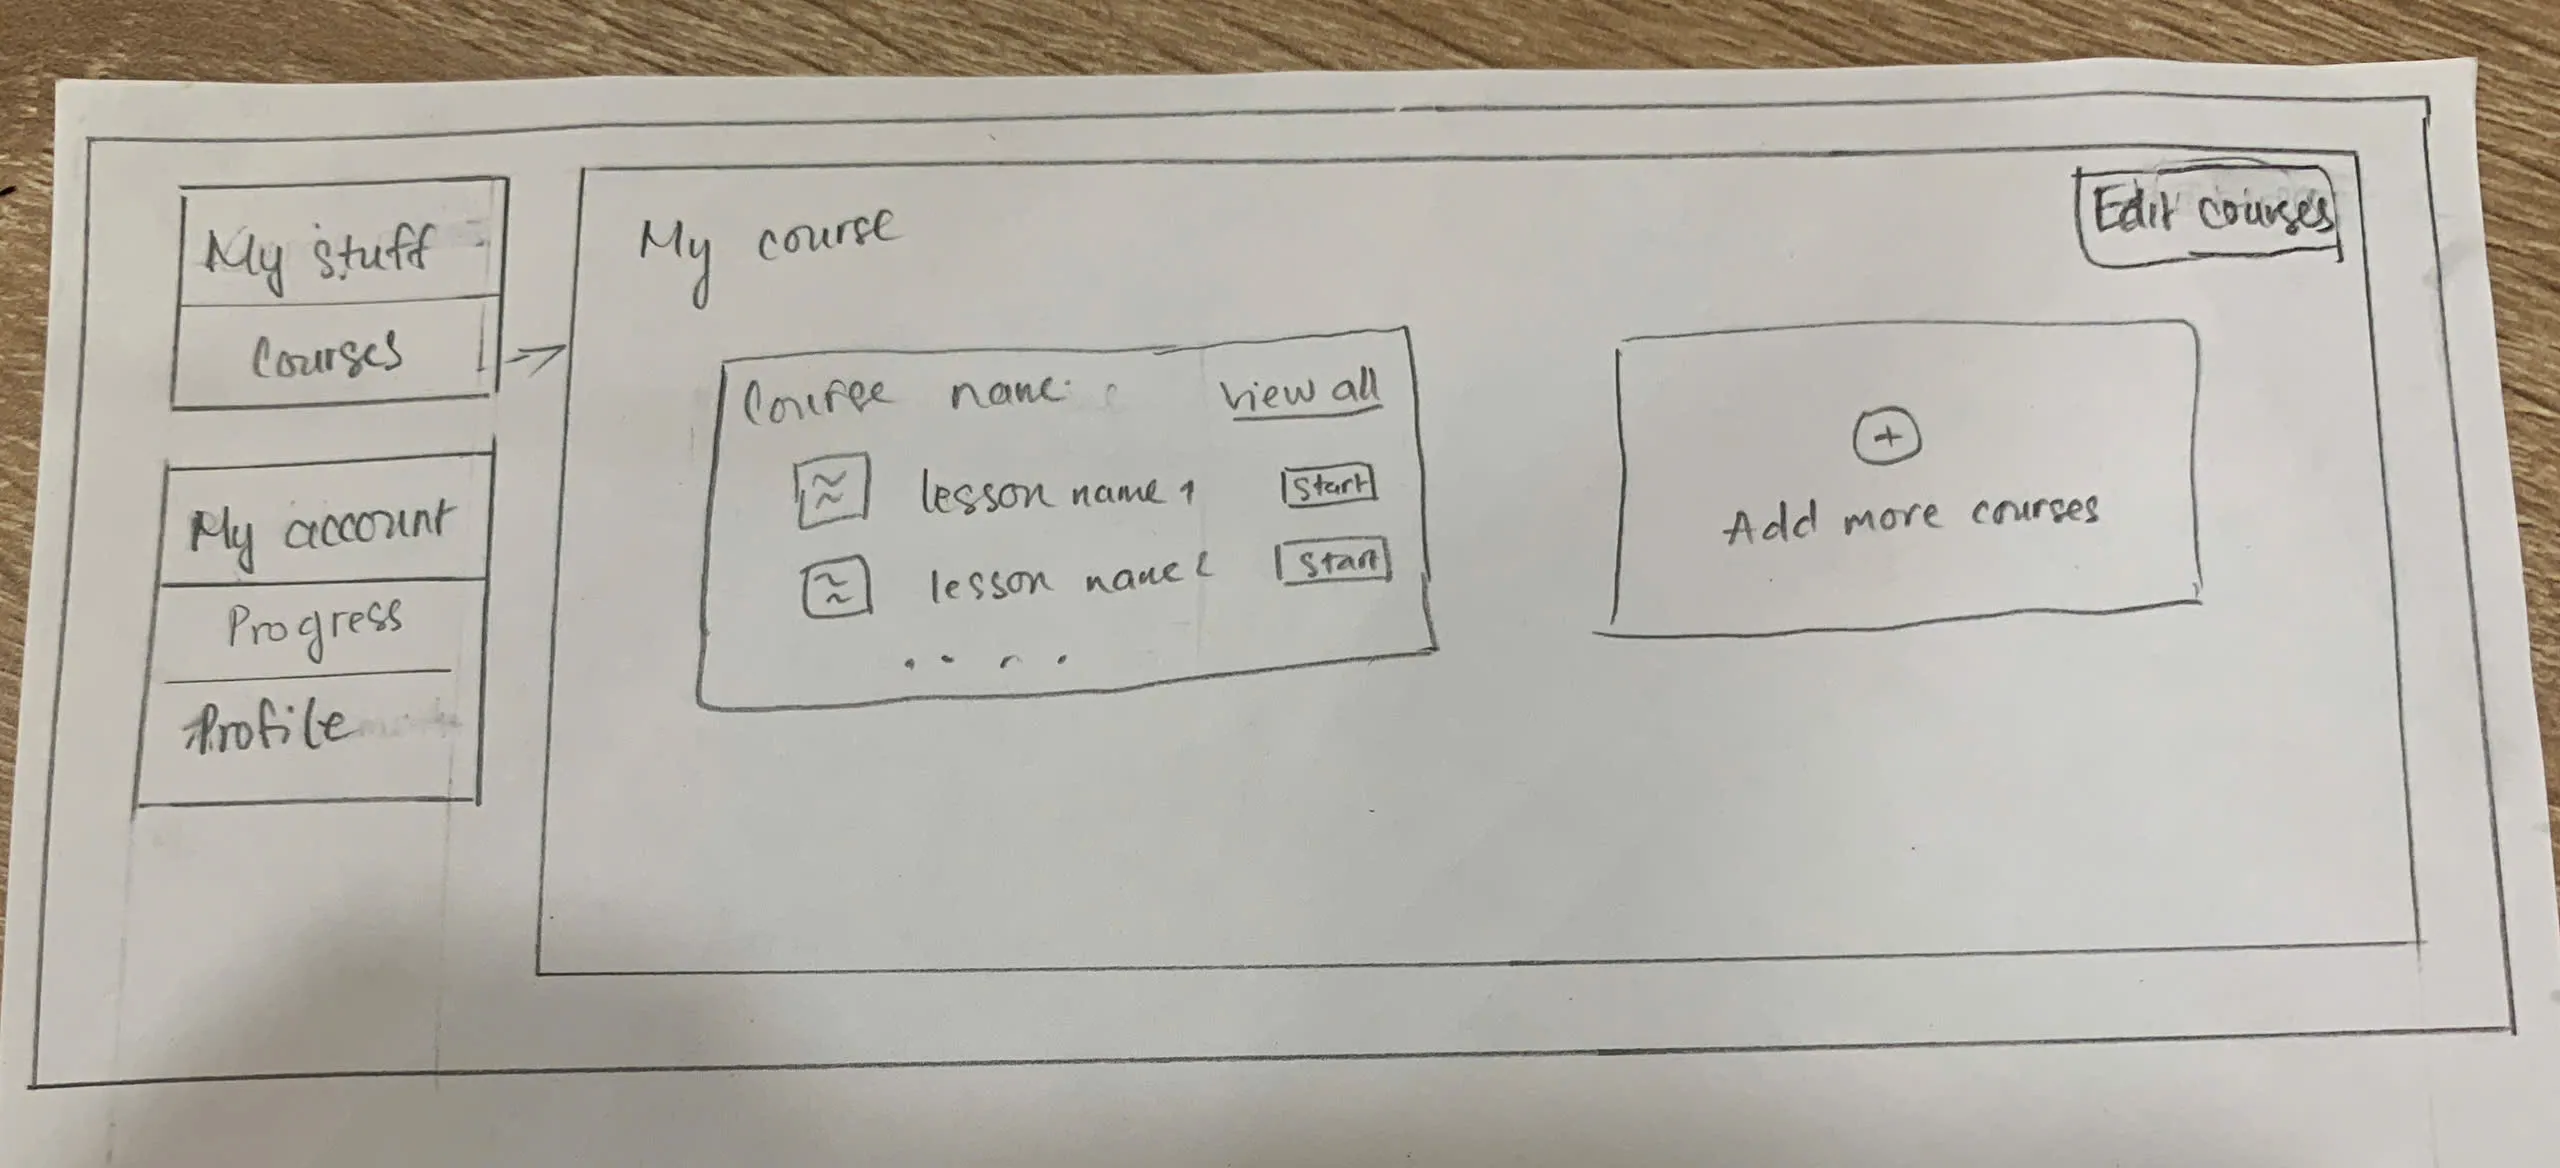 My stuff
Courses
My account
Progress
Profile
My course
Edit courses
Course name
View all
lesson name 1
Start
lesson name 2
Start
....
+
Add more courses